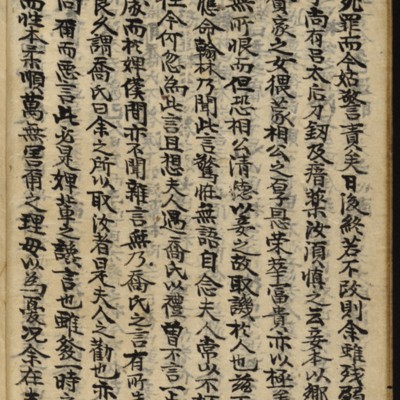 死罪而今姑警責矣日後終若不改則余雖殘弱
尚有呂太后刀釼及瘖藥汝須慎之云妾本以鄉
家之女猥蒙相公之厚恩榮華富貴亦以極
無所恨而但恐相公清德以妾之故取譏於人也茲不
應命翰林乃聞此言驚恠無語自念夫人常以不
今何忽為此言且想夫人遇喬氏以禮曾不言一
處而於婢僕間亦不聞雜言無乃喬氏之言有所
良久謂喬氏曰余之所以取汝者是夫人之勸也亦
向爾而惡言此必是婢輩之讒言也雖發一時之
而性本柔順萬無害爾之理毋以為憂況余在